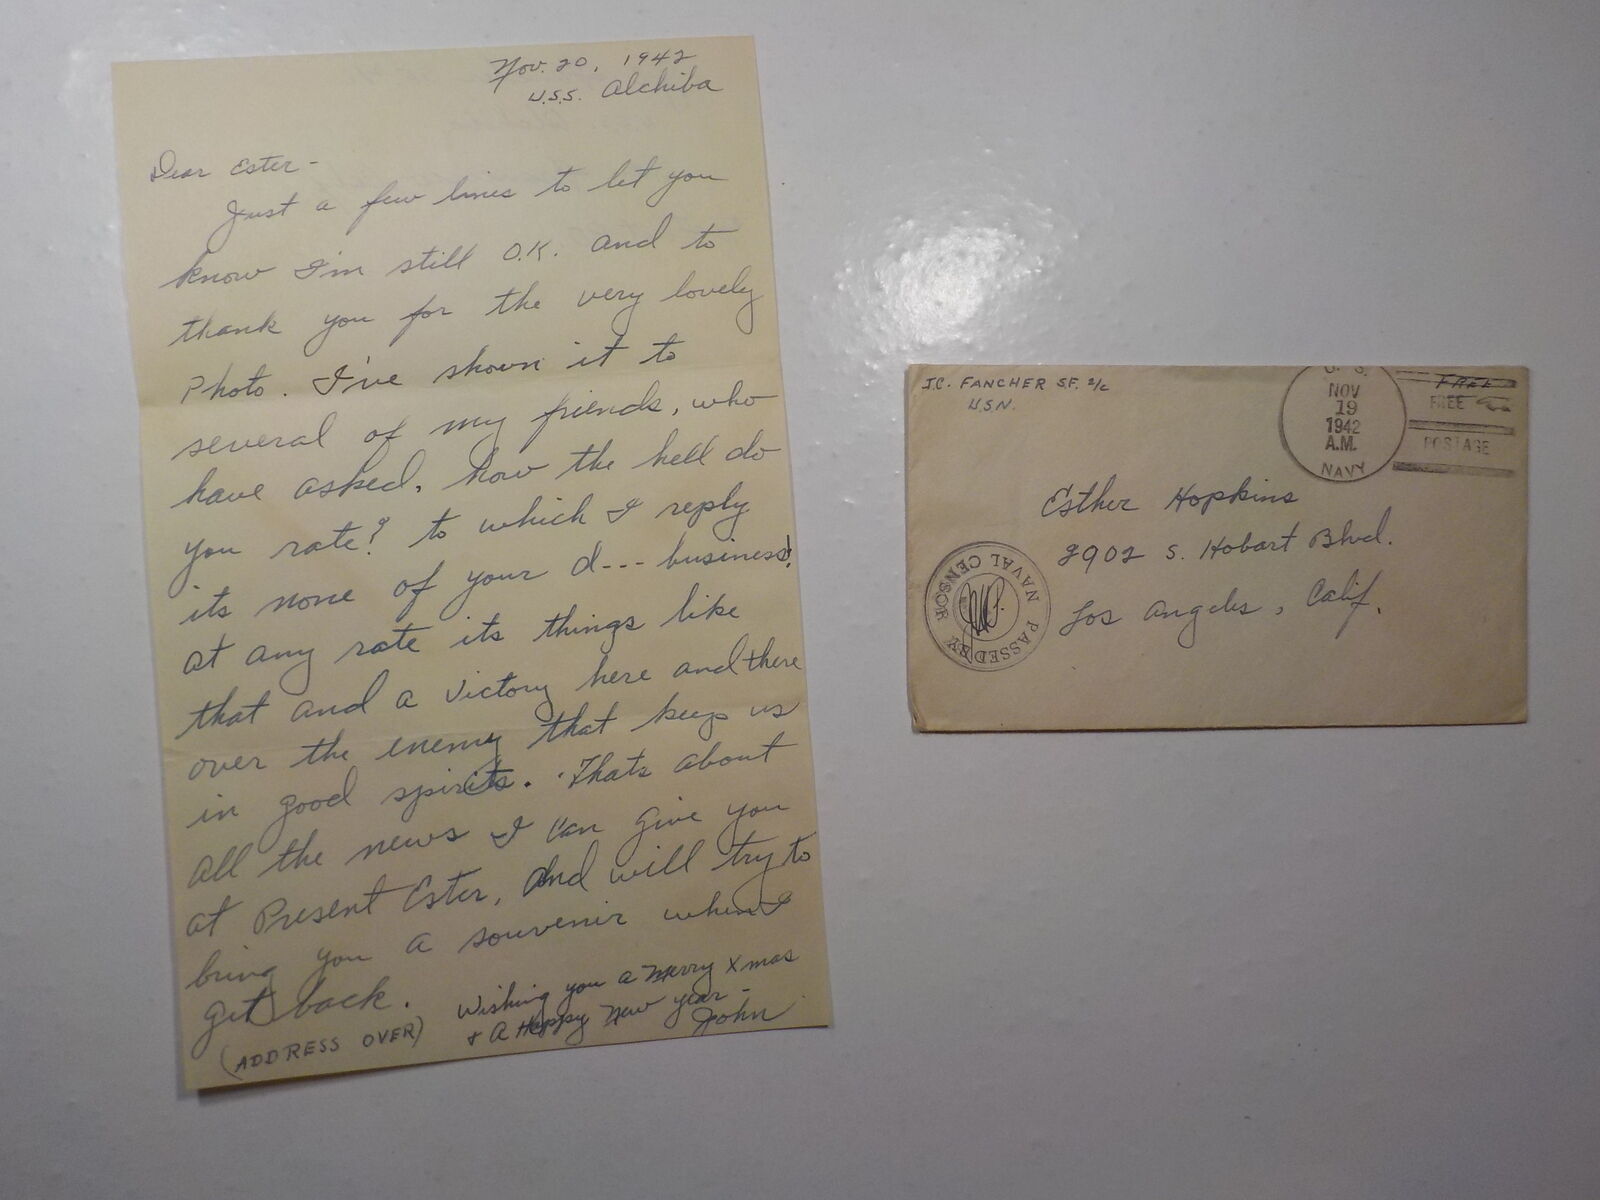 Nov. 20, 1942
U.S.S. Alchiba
Dear Ester-
Just a few lines to let you
know I'm still O.K. and to
thank you for the very lovely
Photo. I've shown it to
several of my friends, who
have asked, how the hell do
you rate? to which I reply
its none of your d--- business!
at any rate its things like
that and a victory here and there
over the enemy that keeps us
in good spirits. Thats about
all the news I can give you
at Present Ester, and will try to
bring you a souvenir when I
get back.
(ADDRESS OVER)
Wishing you a Merry Xmas
+ A Happy New year-
John
J.C. FANCHER S.F. 2/c
U.S.N.
U. S.
NOV
19
1942
A.M.
NAVY
FREE
FREE
POSTAGE
Esther Hopkins
2902 S. Hobart Blvd.
Los Angeles, Calif.
PASSED BY NAVAL CENSOR